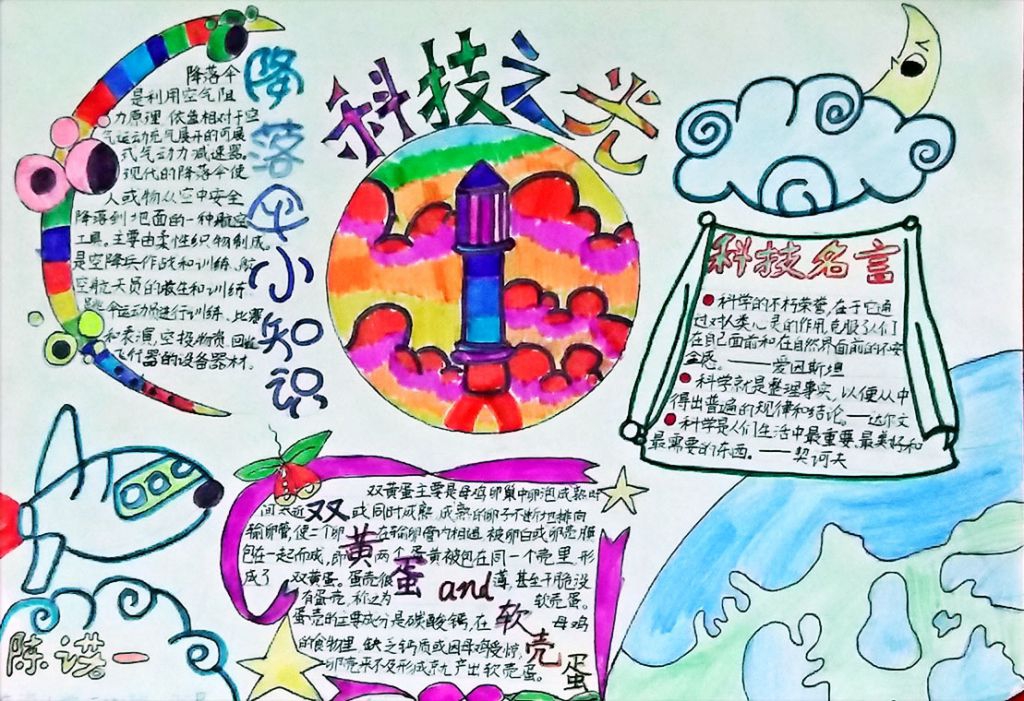 科技之光
降落伞小知识
降落伞
是利用空气阻
力原理,依靠相对于空
气运动充气展开的可展
式气动力减速器。
现代的降落伞使
人或物从空中安全
降落到地面的一种航空
工具。主要由柔性织物制成。
是空降兵作战和训练、航
空航天员的救生和训练、
跳伞运动员进行训练、比赛
和表演,空投物资、回收
飞行器的设备器材。
科技名言
科学的不朽荣誉,在于它通
过对人类心灵的作用,克服了人们
在自己面前和在自然界面前的不安
全感。——爱因斯坦
科学就是整理事实,以便从中
得出普遍的规律和结论——达尔文
科学是人们生活中最重要、最美好和
最需要的东西。——契诃夫
双黄蛋and软壳蛋
双黄蛋主要是母鸡卵巢中卵泡成熟时
间太近或同时成熟,成熟的卵子不断地排向
输卵管,使二个卵在输卵管内相遇,被卵白或卵壳膜
包在一起而成,即两个蛋黄被包在同一个壳里,形
成了双黄蛋。蛋壳很薄,甚至干脆没
有蛋壳,称之为软壳蛋。
蛋壳的主要成分是碳酸钙,在母鸡
的食物里,缺乏钙质或因母鸡受惊,
卵壳来不及形成,就产出软壳蛋。
陈诺一